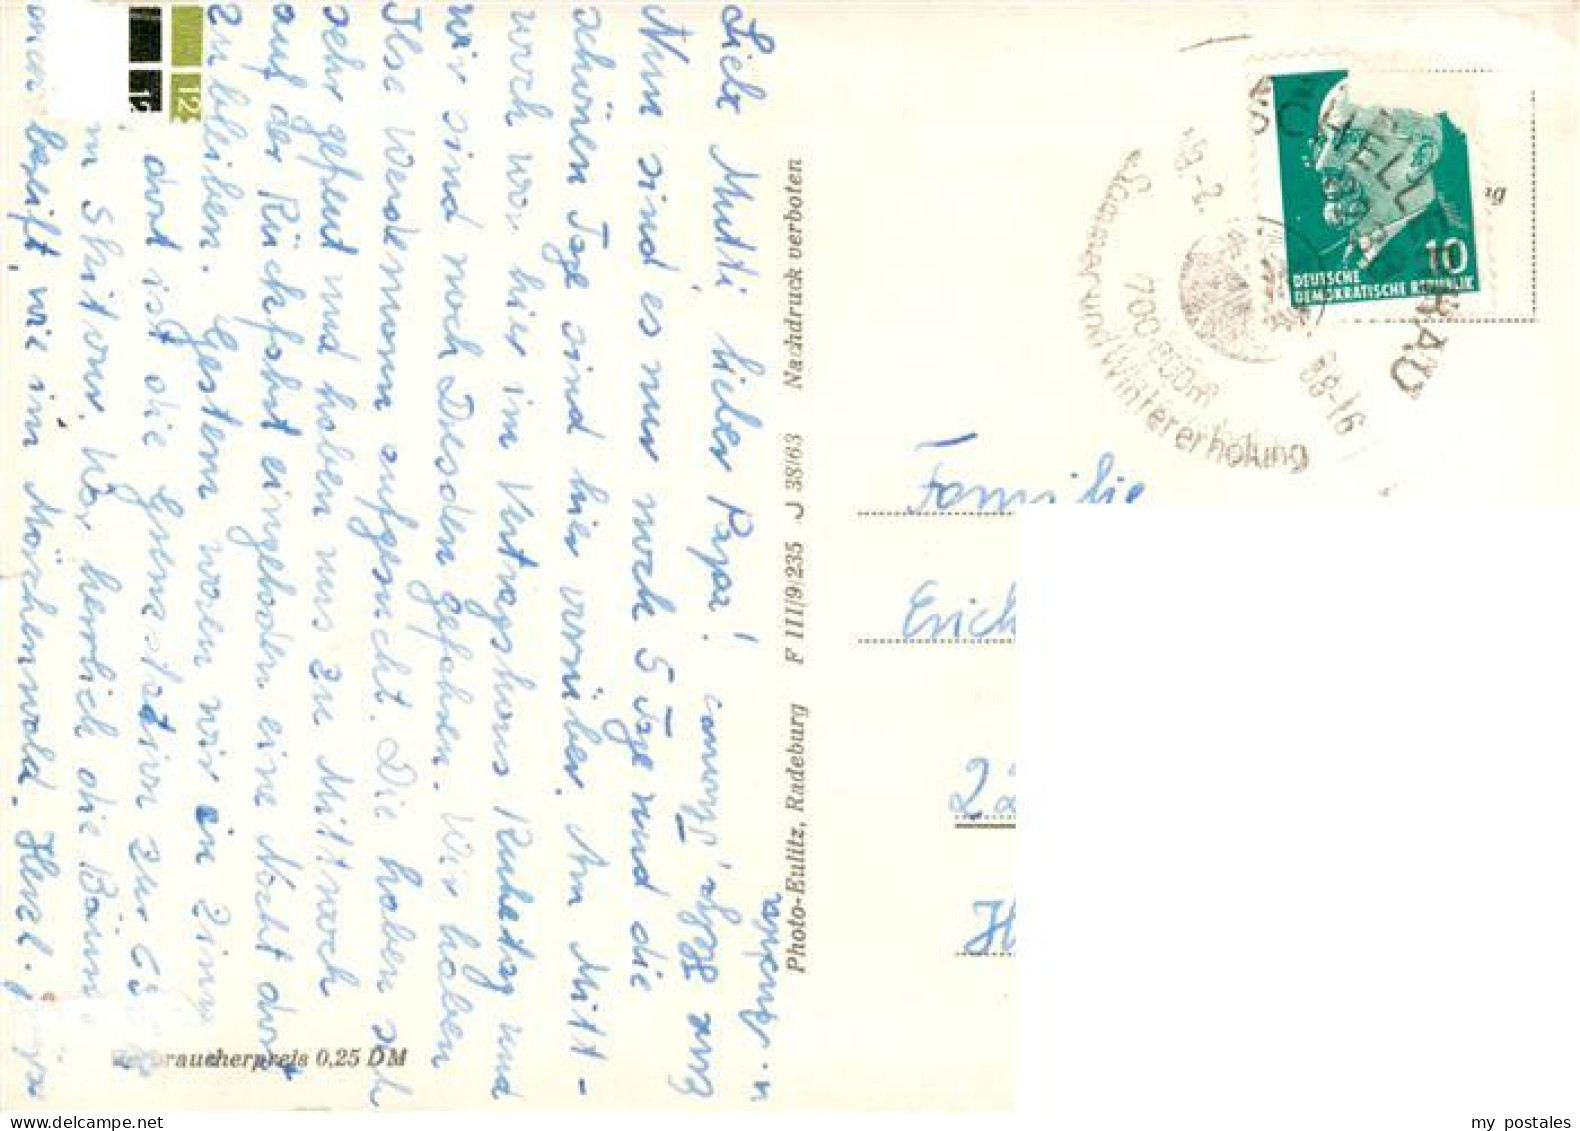 Liebe Mutti lieber Papa!
Nun sind es nur noch 5 Tage und die
schönen Tage sind hier vorüber. Am Mitt-
woch war hier im Vertragshaus Ruhetag und
wir sind nach Dresden gefahren. Wir haben
Ilse Wendemann aufgesucht. Die haben sich
sehr gefreut und haben uns zu Mittwoch
auf der Rückfahrt eingeladen eine Nacht dort
zu bleiben. Gestern waren wir in Zinn
dort ist die Grenzstation zur
m Skitour. War herrlich die Bäum
bereift, wie im Märchenwald. Herzl.
Verbraucherpreis 0,25 DM
Photo-Eulitz, Radeburg F III/9/235 J 38/63 Nachdruck verboten
Familie
Erich
22
H
SCHELLERHAU
Sommer und Wintererholung
700-800m
10
DEUTSCHE
DEMOKRATISCHE REPUBLIK
ng
12
my postales